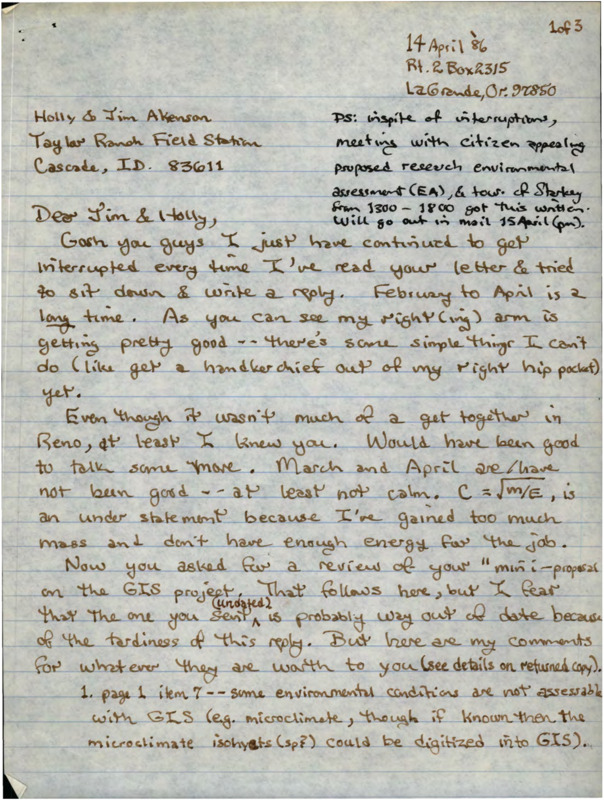 1 of 3
14 April '86
Rt. 2 Box 2315
LaGrande, Or. 97850
Holly & Jim Akenson
Taylor Ranch Field Station
Cascade, ID. 83611
PS: inspite of interruptions,
meeting with citizen appealing
proposed reseech environmental
assessment (EA), & tour of Starkey
from 1300 - 1800 got this written.
Will go out in mail 15 April (pm).
Dear Jim & Holly,
Gosh you guys I just have continued to get
interrupted every time I've read your letter & tried
to sit down & write a reply. February to April is a
long time. As you can see my right(ing) arm is
getting pretty good -- there's some simple things I can't
do (like get a handkerchief out of my right hip pocket)
yet.
Even though it wasn't much of a get together in
Reno, at least I knew you. Would have been good
to talk some more. March and April are/have
not been good -- at least not calm. C = √m/E, is
an under statement because I've gained too much
mass and don't have enough energy for the job.
Now you asked for a review of your "mini-proposal
on the GIS project. That follows here, but I fear
that the one you sent (undated) is probably way out of date because
of the tardiness of this reply. But here are my comments
for whatever they are worth to you (see details on returned copy).
1. page 1 item 7 -- some environmental conditions are not assessable
with GIS (eg. microclimate, though if known then the
microclimate isohyets (sp?) could be digitized into GIS).